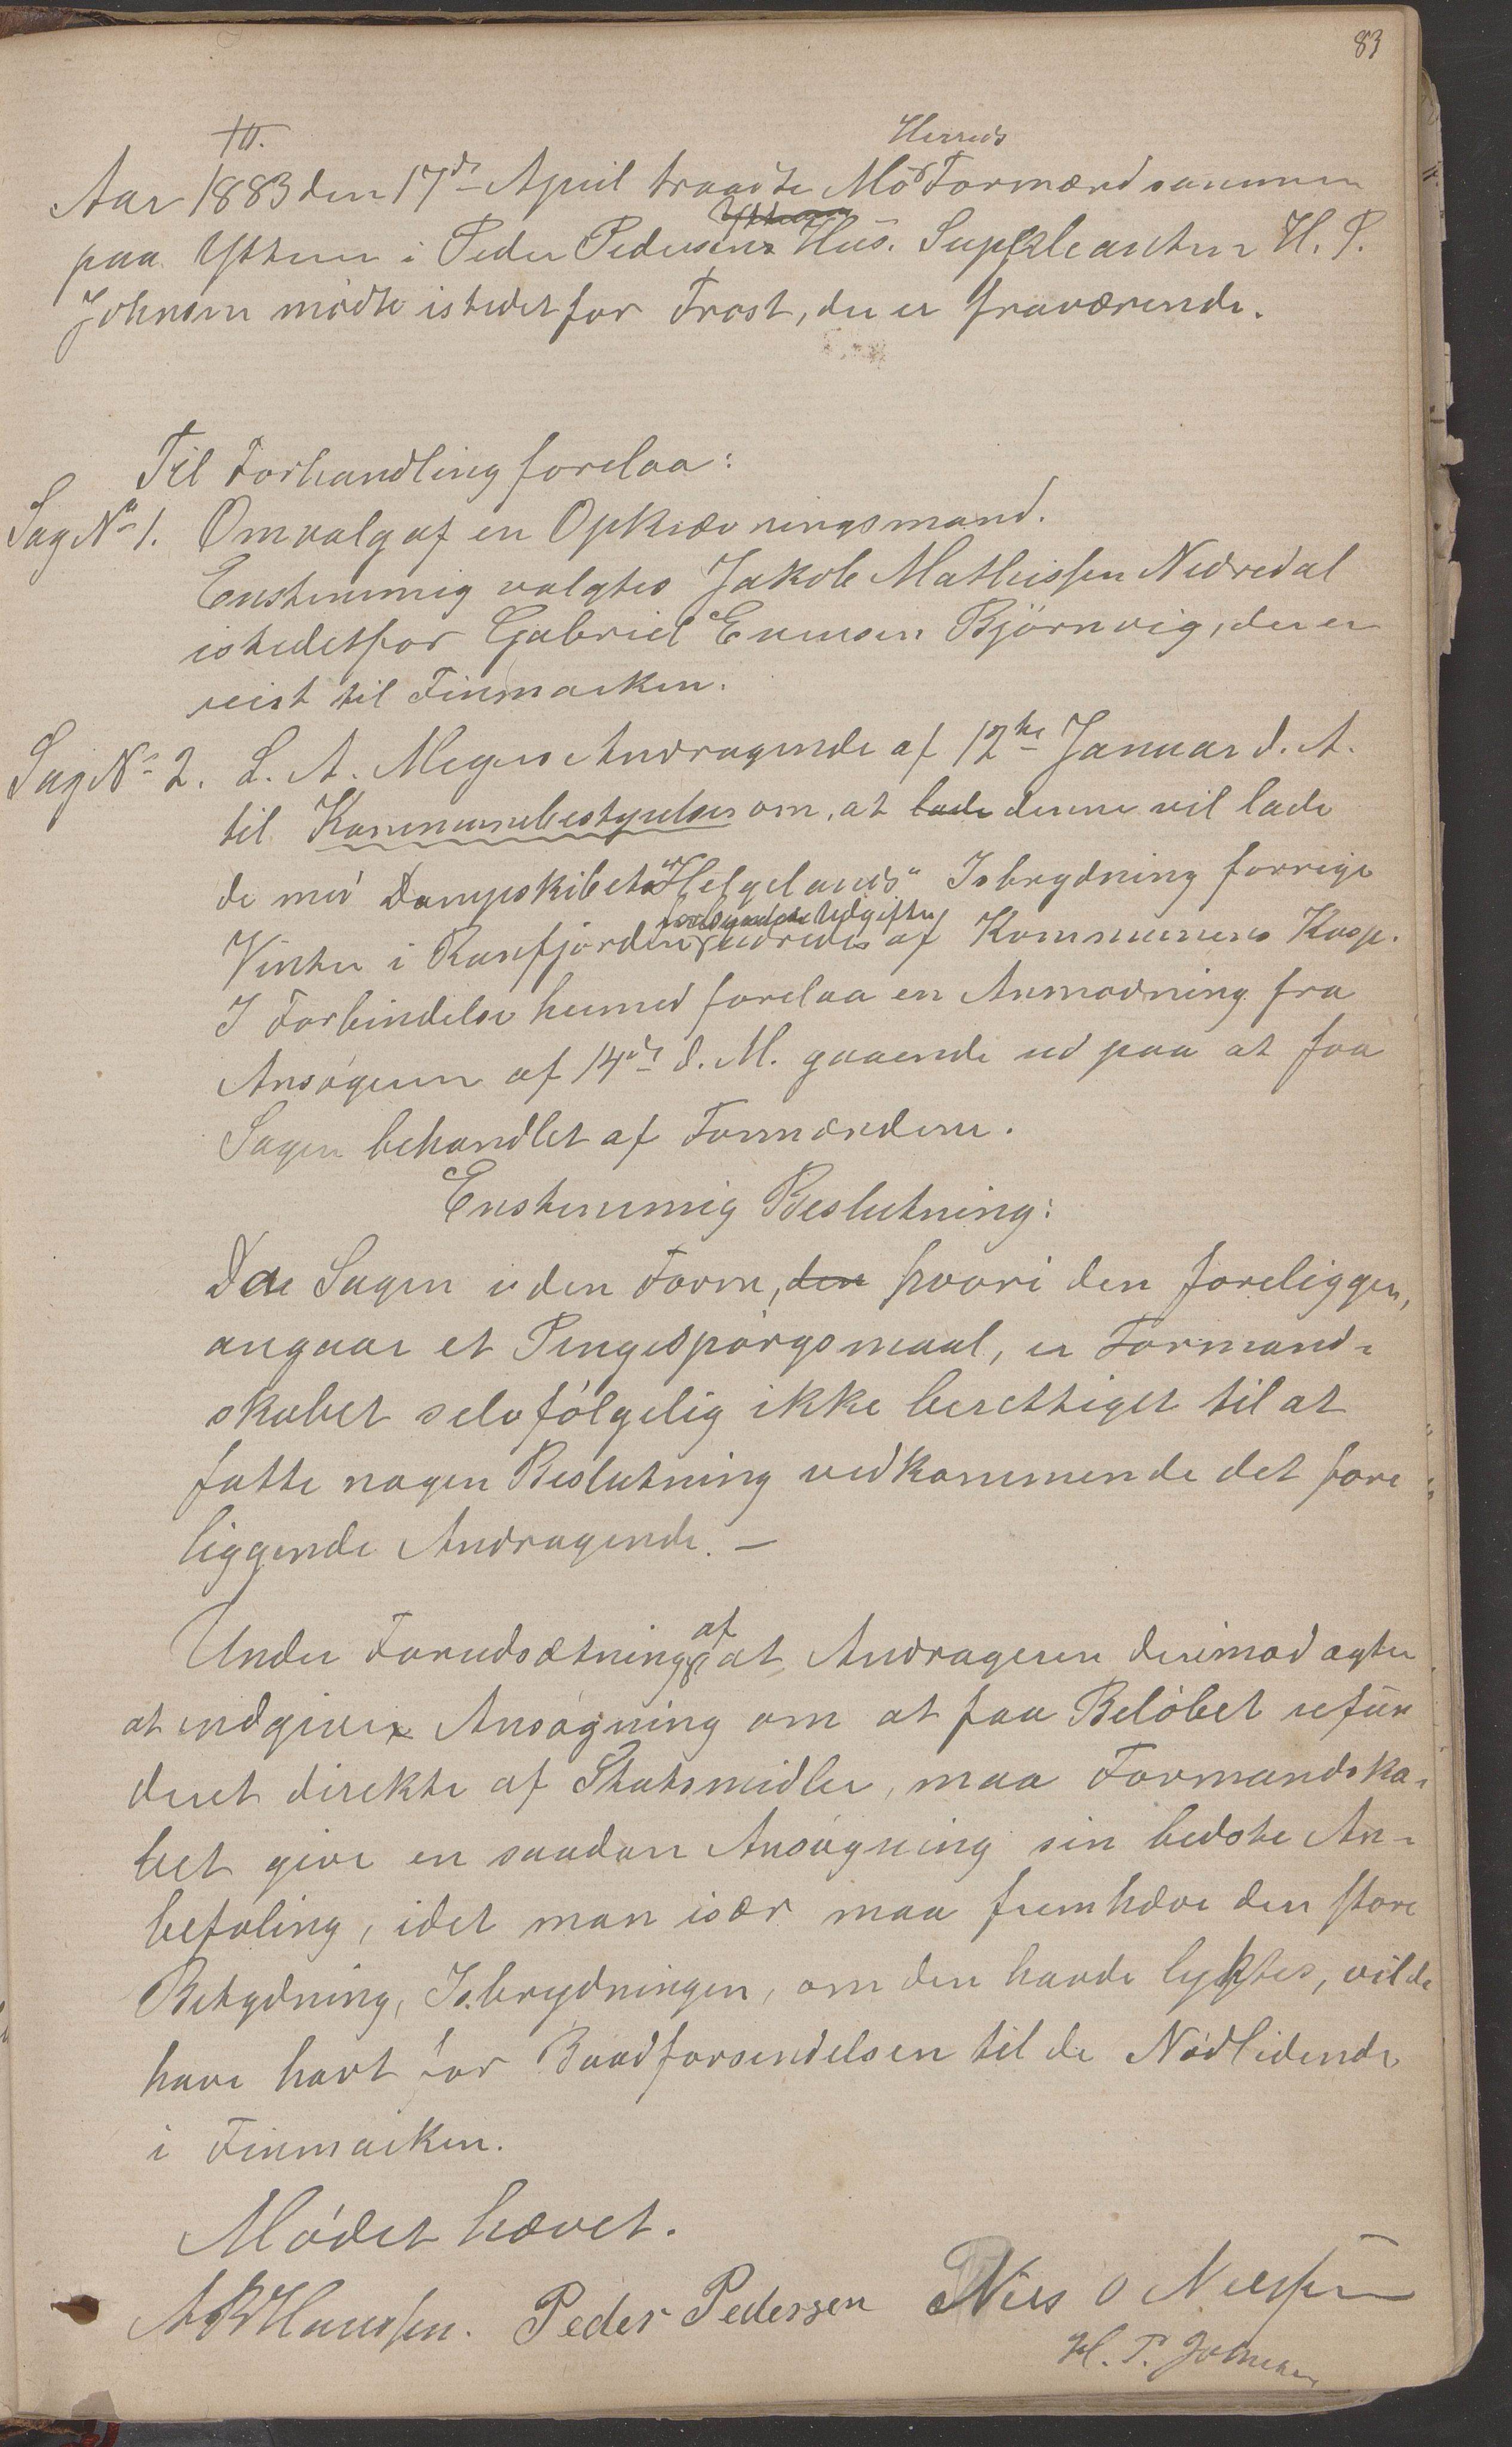 83
Herreds
Aar 1883 den 17de April traadte Mo Formænd sammen
paa Ytteren i Peder Pedersens Hus. Suppleanten H. P.
Johnsen mødte istedetfor Frost, der er fraværende.
Til Forhandling forelaa:
Sag No 1. Omvalg af en Opkrævningsmand.
Enstemmig valgtes Jakob Mathissen Nedredal
istedetfor Gabriel Evensen Björnvig, der er
reist til Finmarken.
Sag No 2. L. A. Meyers Andragende af 12te Januar d. A.
til Kommunebestyrelsen om, at lade denne vil lade
de med Dampskibet "Helgelands" Isbrydning forrige
forbundne Udgifter
Vinter i Ranfjorden udredes af Kommunens Kasse.
I Forbindelse hermed forelaa en Anmodning fra
Ansøgeren af 14de d. M. gaaende ud paa at faa
Sagen behandlet af Formændene.
Enstemmig Beslutning:
Da Sagen i den Form, den hvori den foreligger,
angaar et Pengespörgsmaal, er Formand-
skabet selvfölgelig ikke berettiget til at
fatte nogen Beslutning vedkommende det fore
liggende Andragende. —
af
Under Forudsætning at Andrageren derimod agter
at indgive Ansøgning om at faa Beløbet refun
deret direkte af Statsmidler, maa Formandska-
bet give en saadan Ansøgning sin bedste An-
befaling, idet man især maa fremhæve den store
Betydning, Isbrydningen, om den havde lykkes, vilde
have havt for Baadforsendelsen til de Nødlidende
i Finmarken.
Mødet hævet.
Hanssen. Peder Pedersen Niels O Nielssen
H. P. Johnsen